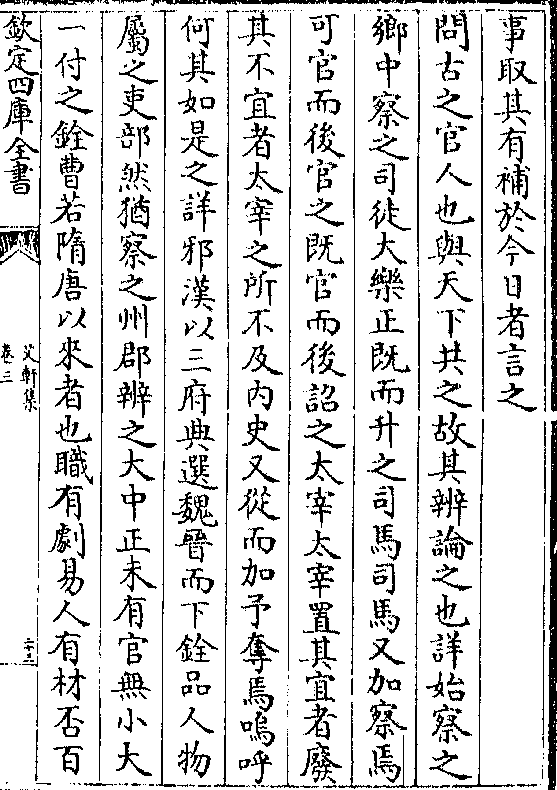 事取其有補於今日者言之
問古之官人也與天下共之故其辨論之也詳始察之
鄉中察之司徒大樂正既而升之司馬司馬又加察焉
可官而後官之既官而後詔之太宰太宰置其宜者廢
其不宜者太宰之所不及内史又從而加予奪焉嗚呼
何其如是之詳邪漢以三府典選魏晉而下銓品人物
屬之吏部然猶察之州郡辨之大中正未有官無小大
一付之銓曹若隋唐以來者也職有劇易人有材否百
欽定四庫全書
艾軒集
卷三
二十三